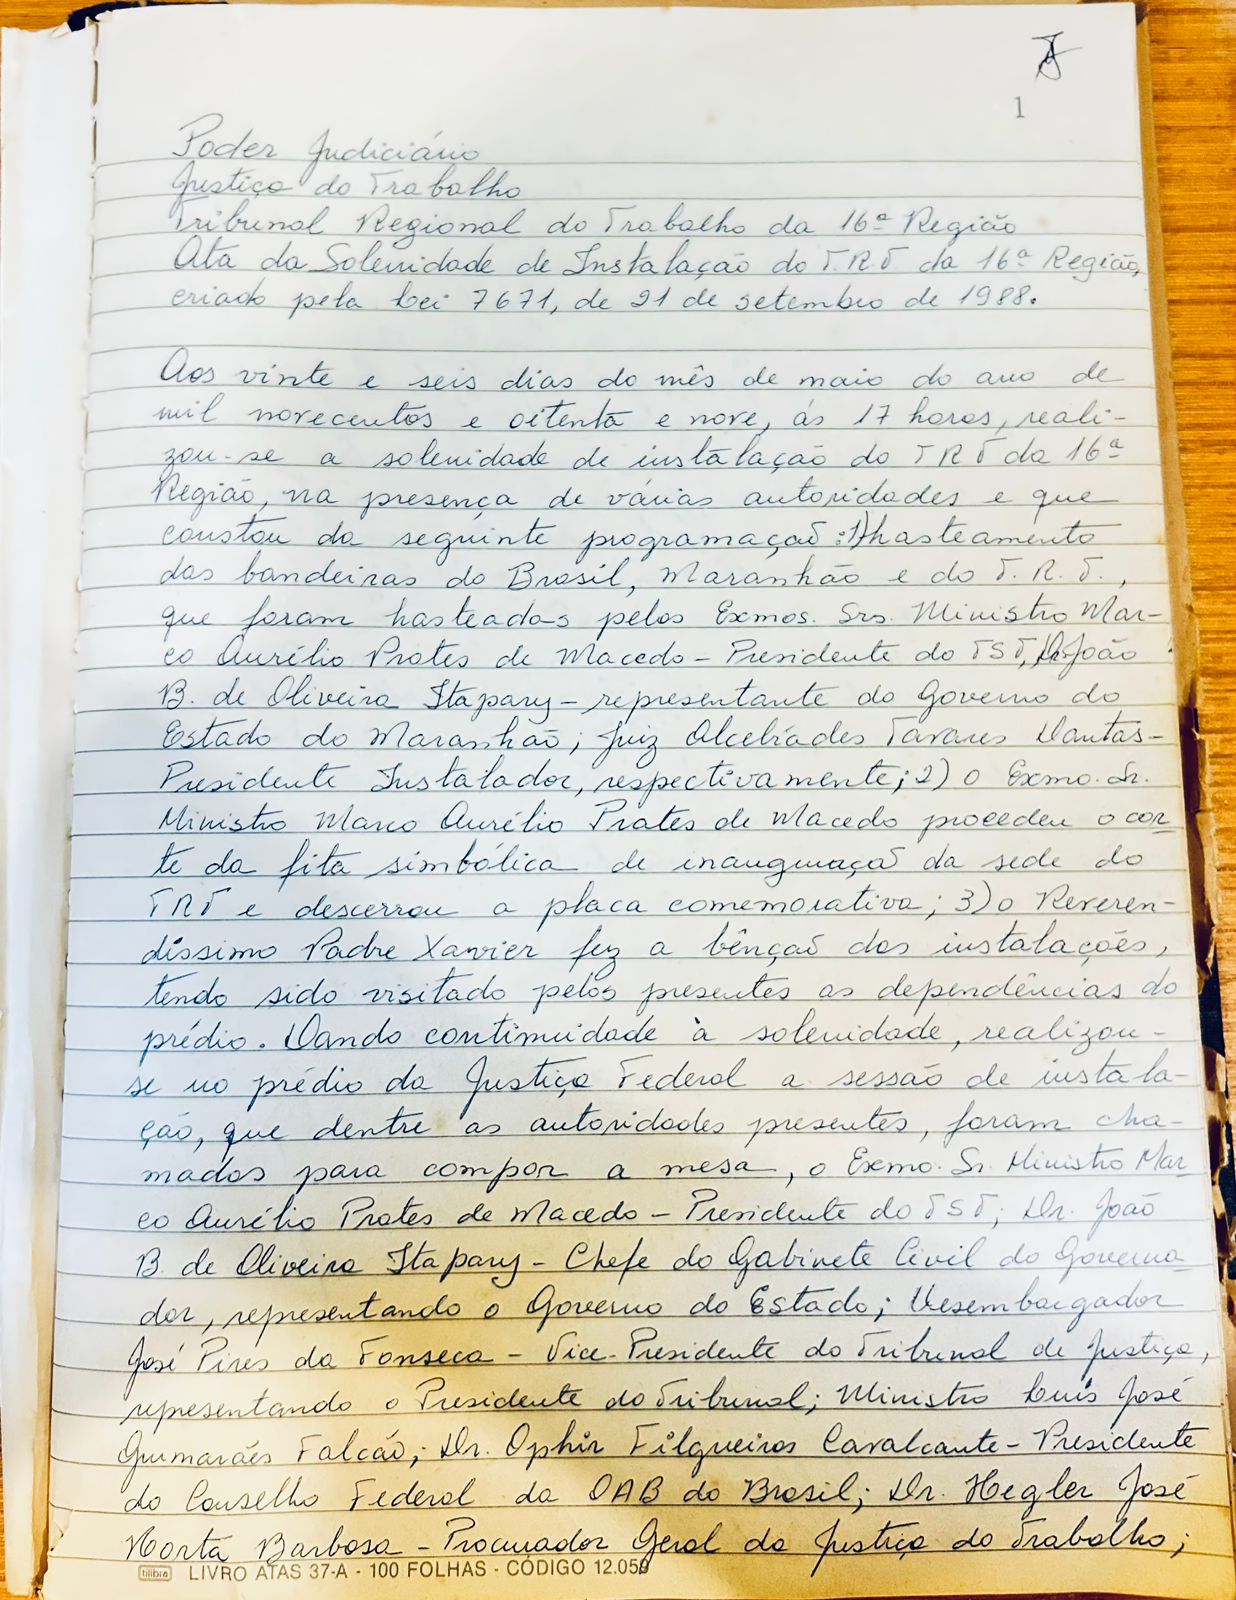 1
Poder Judiciário
Justiça do Trabalho
Tribunal Regional do Trabalho da 16ª Região
Ata da Solenidade de Instalação do T.R.T da 16ª Região,
criado pela Lei 7671, de 21 de setembro de 1988.
Aos vinte e seis dias do mês de maio do ano de
mil novecentos e oitenta e nove, ás 17 horas, reali-
zou-se a solenidade de instalação do TRT da 16ª
Região, na presença de várias autoridades e que
constou da seguinte programação: 1) hasteamento
das bandeiras do Brasil, Maranhão e do T.R.T.,
que foram hasteadas pelos Exmos. Srs. Ministro Mar-
co Aurélio Prates de Macedo - Presidente do TST, Dr. João
B. de Oliveira Itapary - representante do Governo do
Estado do Maranhão; Juiz Alcebíades Tavares Dantas -
Presidente Instalador, respectivamente; 2) o Exmo. Sr.
Ministro Marco Aurélio Prates de Macedo procedeu o cor-
te da fita simbólica de inauguração da sede do
TRT e descerrou a placa comemorativa; 3) o Reveren-
díssimo Padre Xavier fez a bênção das instalações,
tendo sido visitado pelos presentes as dependências do
prédio. Dando continuidade à solenidade, realizou-
se no prédio da Justiça Federal a sessão de instala-
ção, que dentre as autoridades presentes, foram cha-
mados para compor a mesa, o Exmo. Sr. Ministro Mar-
co Aurélio Prates de Macedo - Presidente do TST; Dr. João
B. de Oliveira Itapary - Chefe do Gabinete Civil do Governa-
dor, representando o Governo do Estado; Desembargador
José Pires da Fonseca - Vice-Presidente do Tribunal de Justiça,
representando o Presidente do Tribunal; Ministro Luis José
Guimarães Falcão; Dr. Ophir Filgueiras Cavalcante - Presidente
do Conselho Federal da OAB do Brasil; Dr. Hegler José
Horta Barbosa - Procurador Geral da Justiça do Trabalho;
tilibra LIVRO ATAS 37-A - 100 FOLHAS - CÓDIGO 12.059